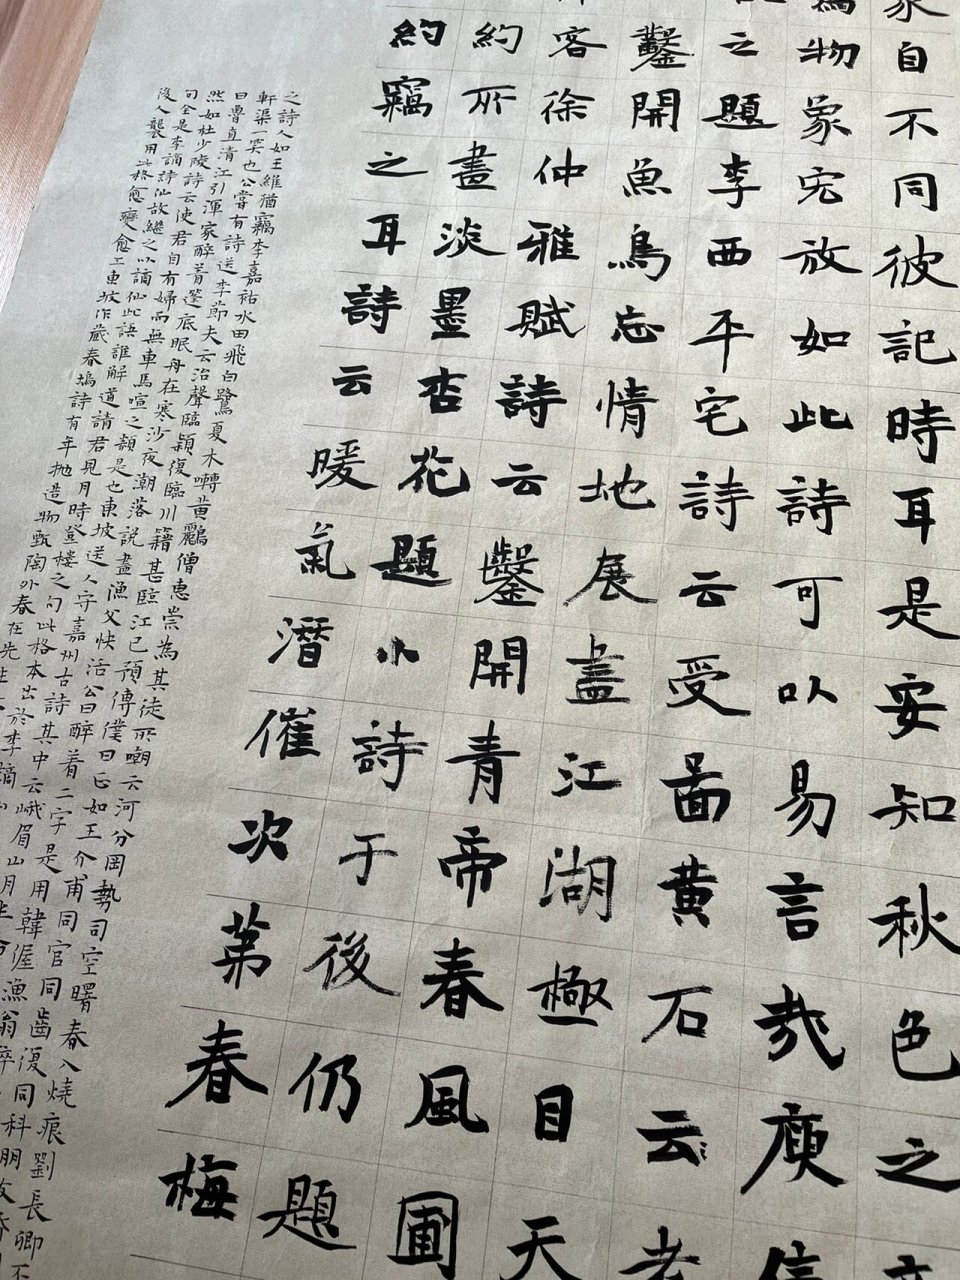 自不同彼記時耳是安知秋色之
物象宛放如此詩可以易言哉庾信
之題李西平宅詩云受啚黃石云老
鑿開魚鳥忘情地展盡江湖極目天
客徐仲雅賦詩云鑿開青帝春風圃
約所畫淡墨杏花題小詩于後仍題
約竊之耳詩云暖氣潛催次第春梅
之詩人如王維猶竊李嘉祐水田飛白鷺夏木囀黃鸝僧惠崇為其徒所嘲云河分岡勢司空曙春入燒痕劉長卿不
軒渠一笑也公嘗有詩送李節夫云治聲臨潁復臨川籍甚臨江已預傳僕曰正如王介甫同官同齒復同科朋友
曰魯直清江引渾家醉着篷底眠舟在寒沙夜潮落說盡漁父快活公曰醉着二字是用韓偓漁翁醉
然如杜少陵詩云使君自有婦而無車馬喧之類是也東坡送人守嘉州古詩其中云峨眉山月半
句全是李謫詩仙故繼之以謫仙此語誰解道請君見月時登樓之句此格本出於李謫
後人襲用此格愈變愈工東坡作藏春塢詩有年拋造物甄陶外春在先生